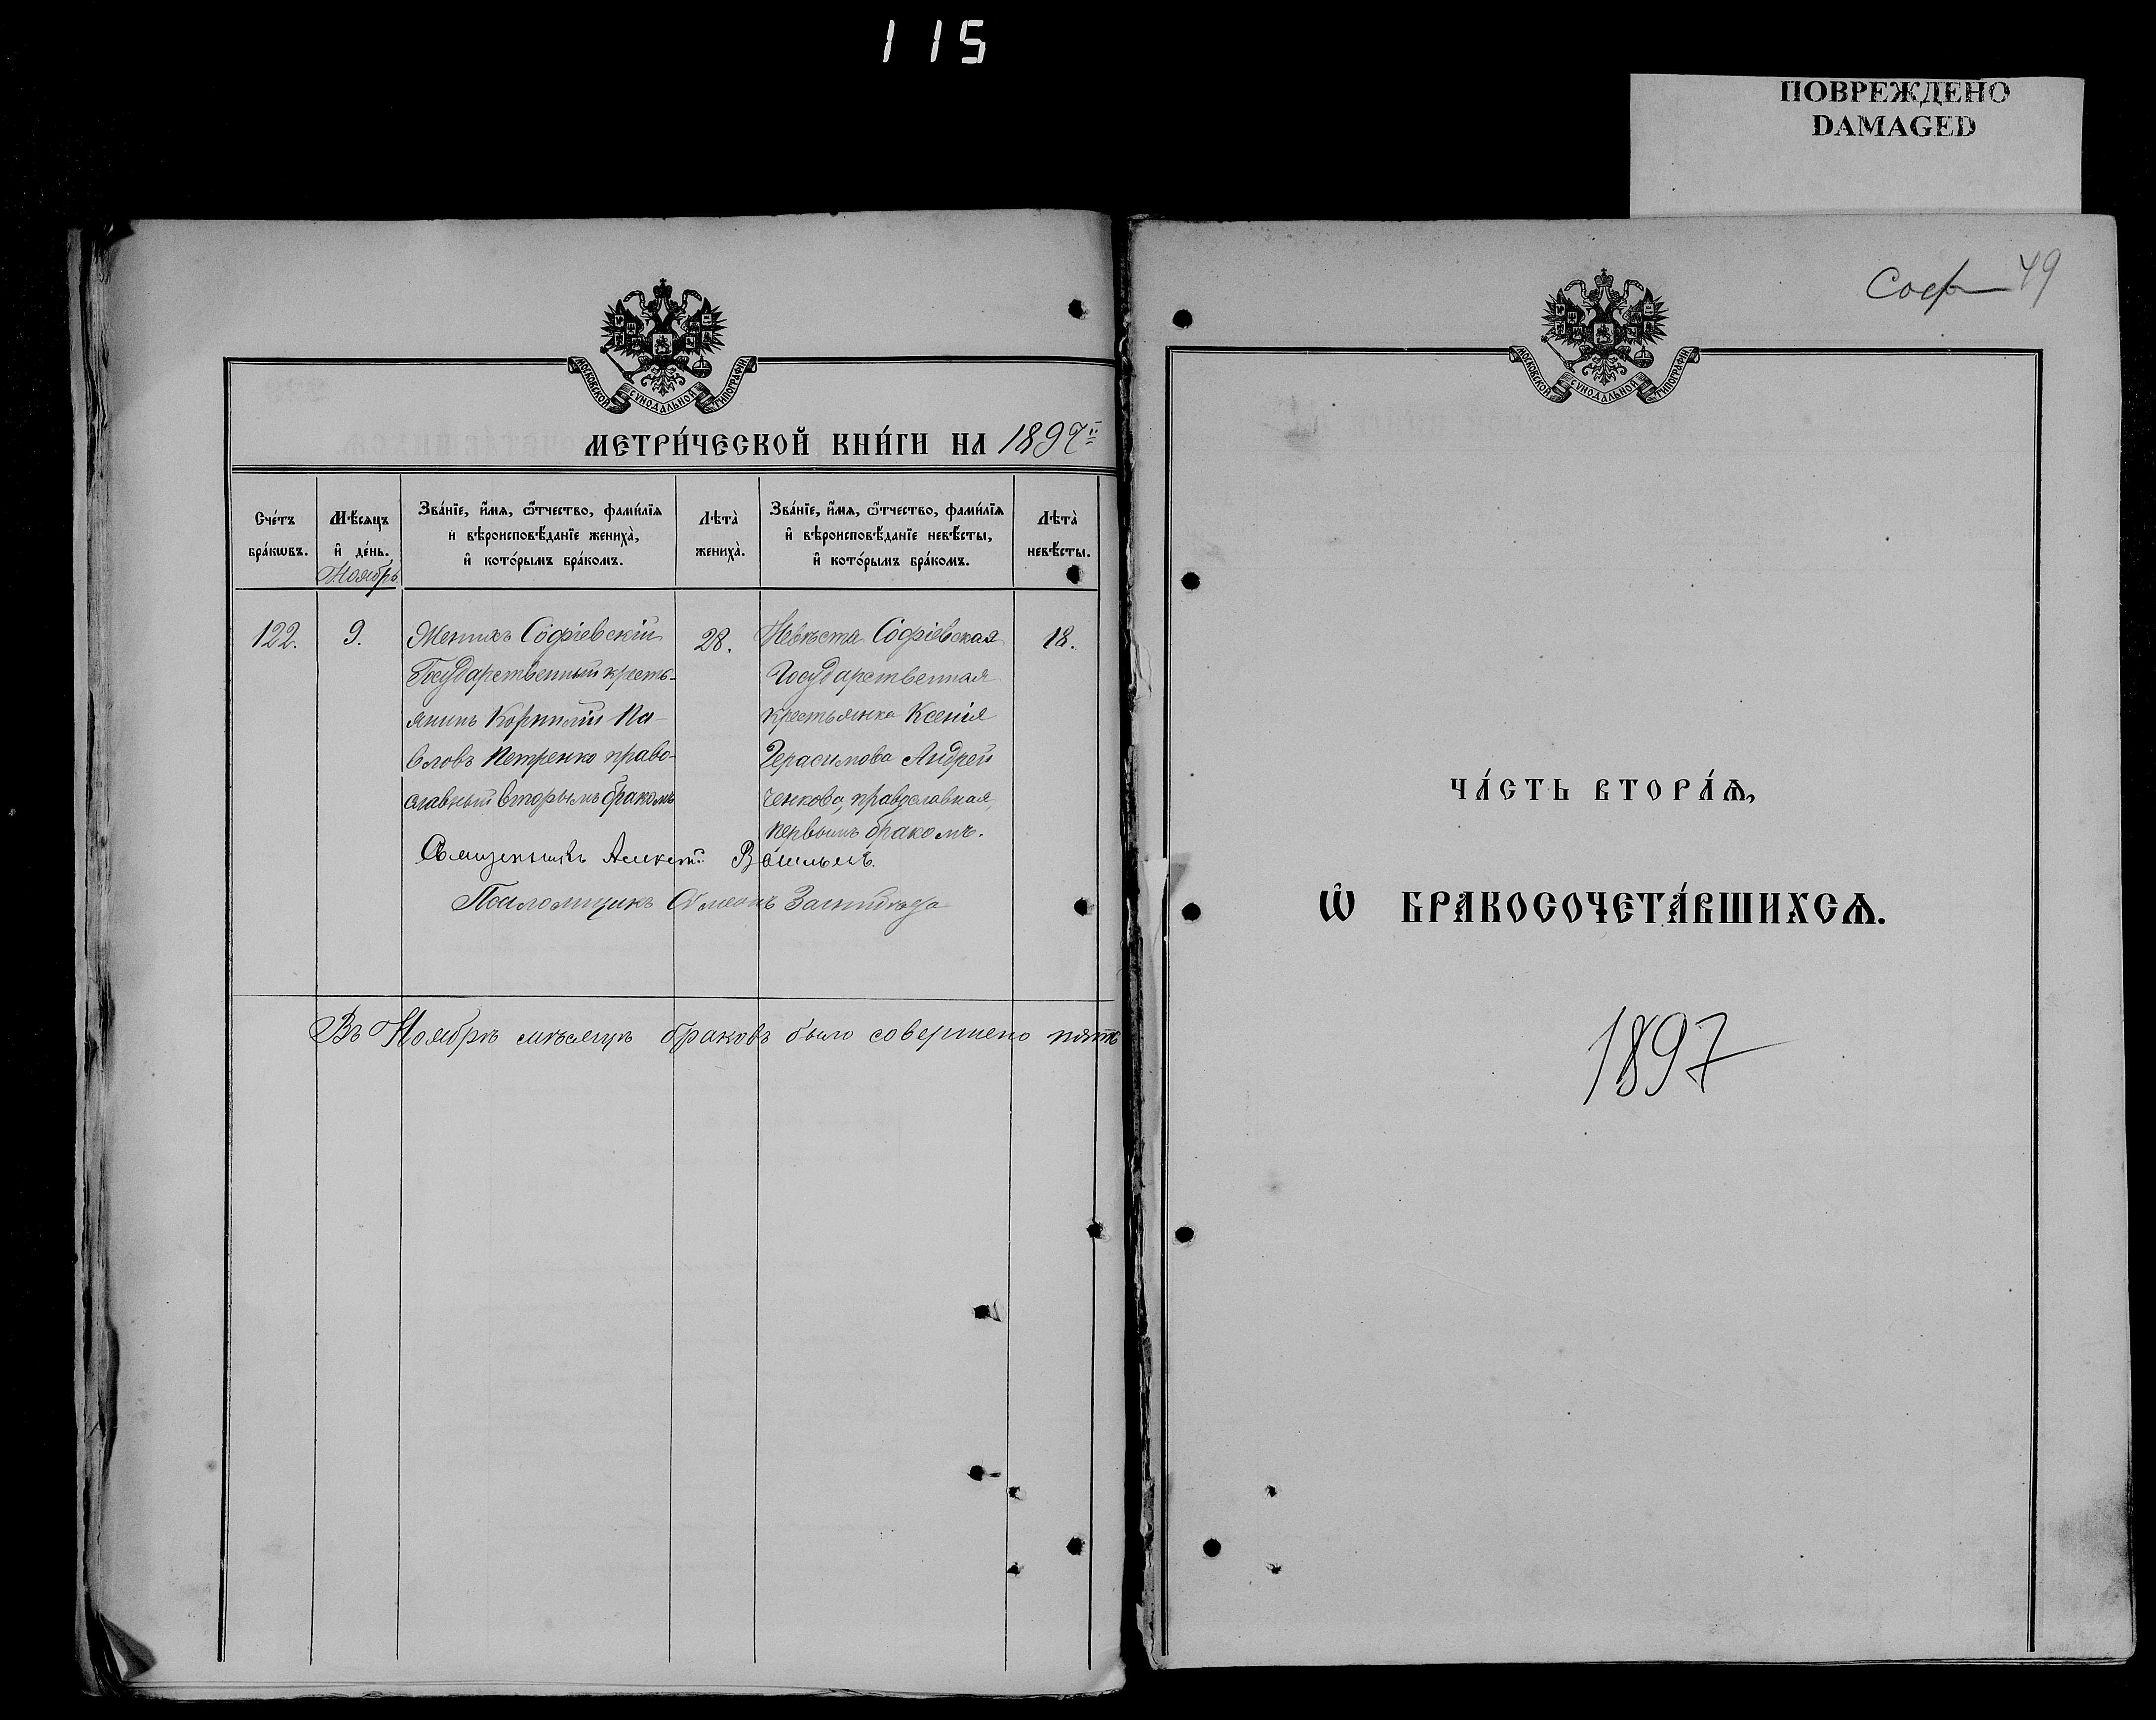 115
ПОВРЕЖДЕНО
DAMAGED
МОСКОВСКОЙ СѴНОДАЛЬНОЙ ТИПОГРАФІИ
МЕТРИ́ЧЕСКОЙ КНИ́ГИ НА 1897
Сче́тъ бра́кѡвъ.
Мѣ́сяцъ и҆ де́нь.
Ноябрь
Зва́нїе, и҆́мѧ, ѻ҆́тчество, фами́лїѧ
и҆ вѣроисповѣ́данїе жениха̀,
и҆ кото́рымъ бра́комъ.
Лѣта̀ жениха̀.
Зва́нїе, и҆́мѧ, ѻ҆́тчество, фами́лїѧ
и҆ вѣроисповѣ́данїе невѣ́сты,
и҆ кото́рымъ бра́комъ.
Лѣта̀ невѣ́сты.
122.
9.
Женихъ Софіевскій
Государственный кресть-
янинъ Корнилій Па-
вловъ Петренко право-
славный вторымъ бракомъ
28.
Невѣста Софіевская
Государственная
крестьянка Ксенія
Герасимова Андрей
ченкова, православная,
первымъ бракомъ.
18.
Священникъ Васильевъ.
Псаломщикъ Симеонъ
Въ Ноябрѣ мѣсяцѣ браковъ было совершено пять
Соф 49
МОСКОВСКОЙ СѴНОДАЛЬНОЙ ТИПОГРАФІИ
ЧА́СТЬ ВТОРА́Ѧ,
Ѡ҆ БРАКОСОЧЕТА́ВШИХСѦ.
1897